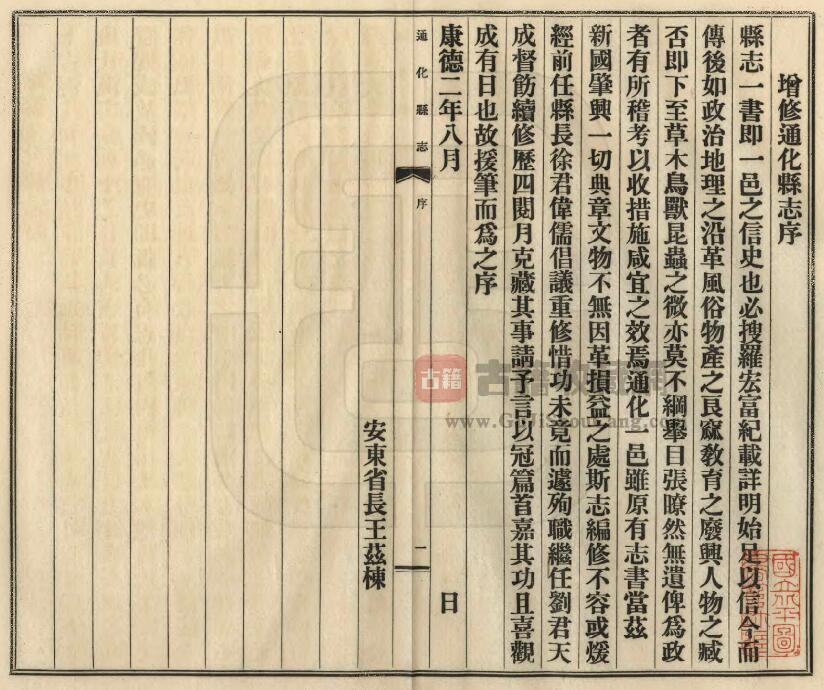 增修通化縣志序
縣志一書即一邑之信史也必搜羅宏富紀載詳明始足以信今而
傳後如政治地理之沿革風俗物產之良窳敎育之廢興人物之臧
否即下至草木鳥獸昆蟲之微亦莫不綱舉目張瞭然無遺俾爲政
者有所稽考以收措施咸宜之效焉通化一邑雖原有志書當茲
新國肇興一切典章文物不無因革損益之處斯志編修不容或煖
經前任縣長徐君偉儒倡議重修惜功未竟而遽殉職繼任劉君天
成督飭續修歷四閱月克藏其事請予言以冠篇首嘉其功且喜觀
成有日也故援筆而爲之序
康德二年八月 日
通化縣志 序 二
安東省長王茲棟
古籍
www.GuJiShouCang.com